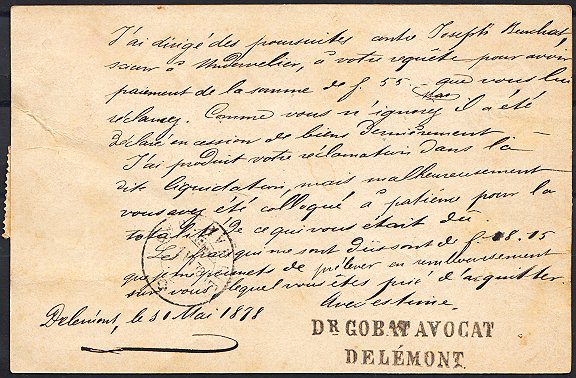 J'ai dirigé des poursuites contre Joseph Burkhat,
scieur à Undervelier, à votre requête pour avoir
paiement de la somme de f. 55.- que vous lui
réclamez. Comme vous n'ignorez il a été
déclaré en cession de biens dernièrement -
J'ai produit votre réclamation dans la
dite liquidation, mais malheureusement
vous avez été colloqué à patience pour la
totalité de ce qui vous était dû.
Les frais qui me sont dûs sont de f. 18.15
que je me permets de prélever en remboursement
sur vous lequel vous êtes prié d'acquitter.
Avec estime.
Delémont, le 31 Mai 1878
DR GOBAT AVOCAT
DELÉMONT